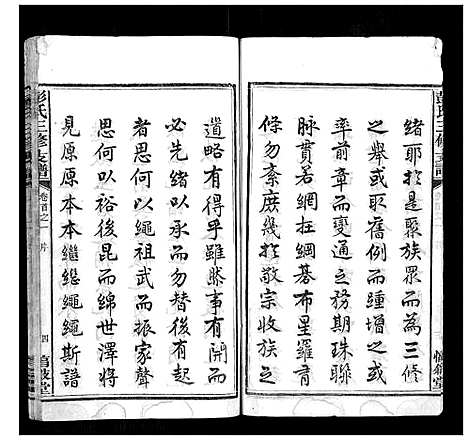 緒耶於是聚族眾而為三修
之舉或取舊例而踵增之或
率前章而變通之務期珠聯
脉貫若網在綱碁布星羅有
條勿紊庶幾於敬宗收族之
道略有得乎雖然事有開而
必先緒以承而勿替後有起
者思何以繩祖武而振家聲
思何以裕後昆而綿世澤將
見原原本本繼繼繩繩斯譜
彭氏三修支譜
卷首之一
序
四